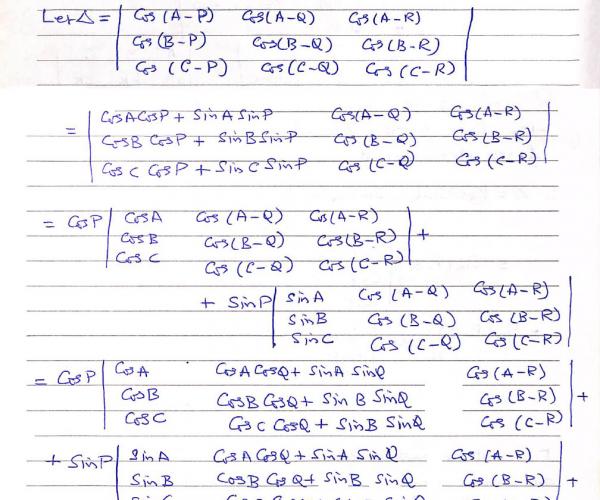 Let Δ = | Cos (A-P) Cos(A-Q) Cos(A-R) |
| Cos (B-P) Cos(B-Q) Cos (B-R) |
| Cos (C-P) Cos(C-Q) Cos (C-R) |
= | CosA CosP + SinA SinP Cos(A-Q) Cos(A-R) |
| CosB CosP + SinB SinP Cos (B-Q) Cos(B-R) |
| Cos C CosP + Sin C SinP Cos (C-Q) Cos (C-R) |
= CosP | CosA Cos (A-Q) Cos(A-R) |
| CosB Cos(B-Q) Cos(B-R) | +
| Cos C Cos (C-Q) Cos (C-R) |
+ SinP | SinA Cos (A-Q) Cos(A-R) |
| SinB Cos (B-Q) Cos (B-R) |
| SinC Cos (C-Q) Cos(C-R) |
= CosP | CosA CosA CosQ + SinA SinQ Cos(A-R) |
| CosB CosB CosQ + Sin B SinQ Cos (B-R) | +
| CosC Cos C CosQ + SinB SinQ Cos (C-R) |
+ SinP | SinA CosA CosQ + SinA SinQ Cos (A-R) |
| SinB CosB CosQ + SinB SinQ Cos (B-R) | +